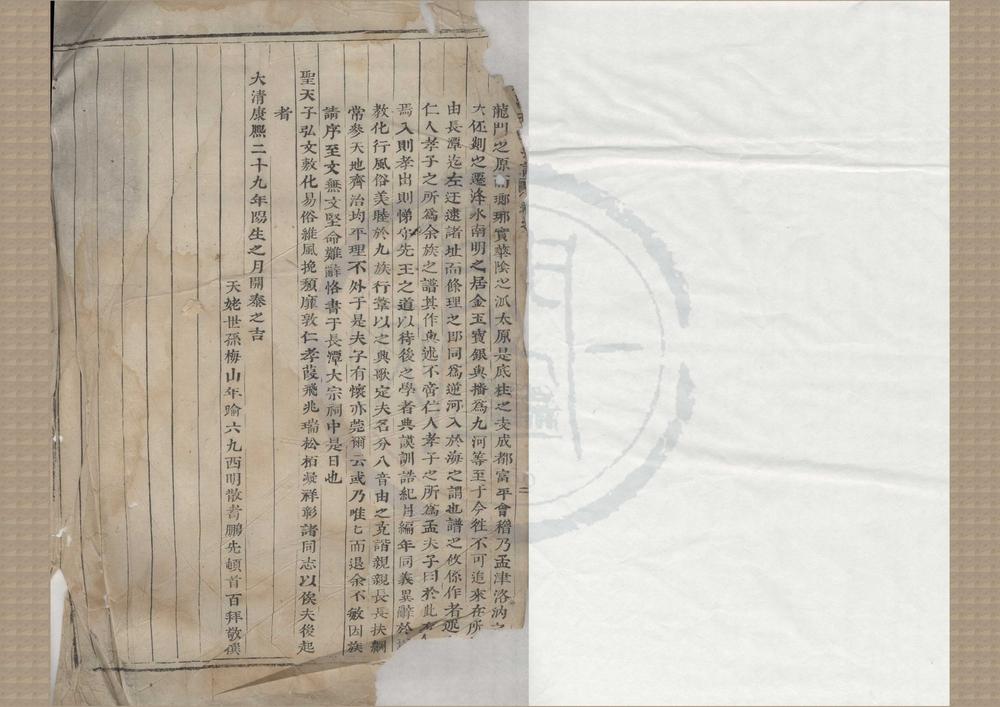 龍門之原而瑯琊實華陰之派太原是底柱之支成都富平會稽乃孟津洛汭之
大伾剡之遷洚水南明之居金玉寶銀典播為九河等至于今徃不可追來在所
由長潭迄左迂遠諸址而條理之即同為逆河入於海之謂也譜之攸係作者述
仁人孝子之所為余族之譜其作與述不啻仁人孝子之所為孟夫子曰於此有
焉入則孝出則悌守先王之道以待後之學者典謨訓誥紀月編年同義異辭於
教化行風俗美睦於九族行葦以之興歌定夫名分八音由之克諧親親長長扶綱
常參天地齊治均平理不外于是夫子有懷亦莞爾云或乃唯匕而退余不敏因族
請序至文無文堅命難辭恪書于長潭大宗祠中是日也
聖天子弘文敷化易俗維風挽頹靡敦仁孝葭飛兆瑞松栢凝祥彰諸同志以俟夫後起
者
大清康熙二十九年陽生之月開泰之吉
天姥世孫梅山年踰六九西明散耆鵬先頓首百拜敬僎